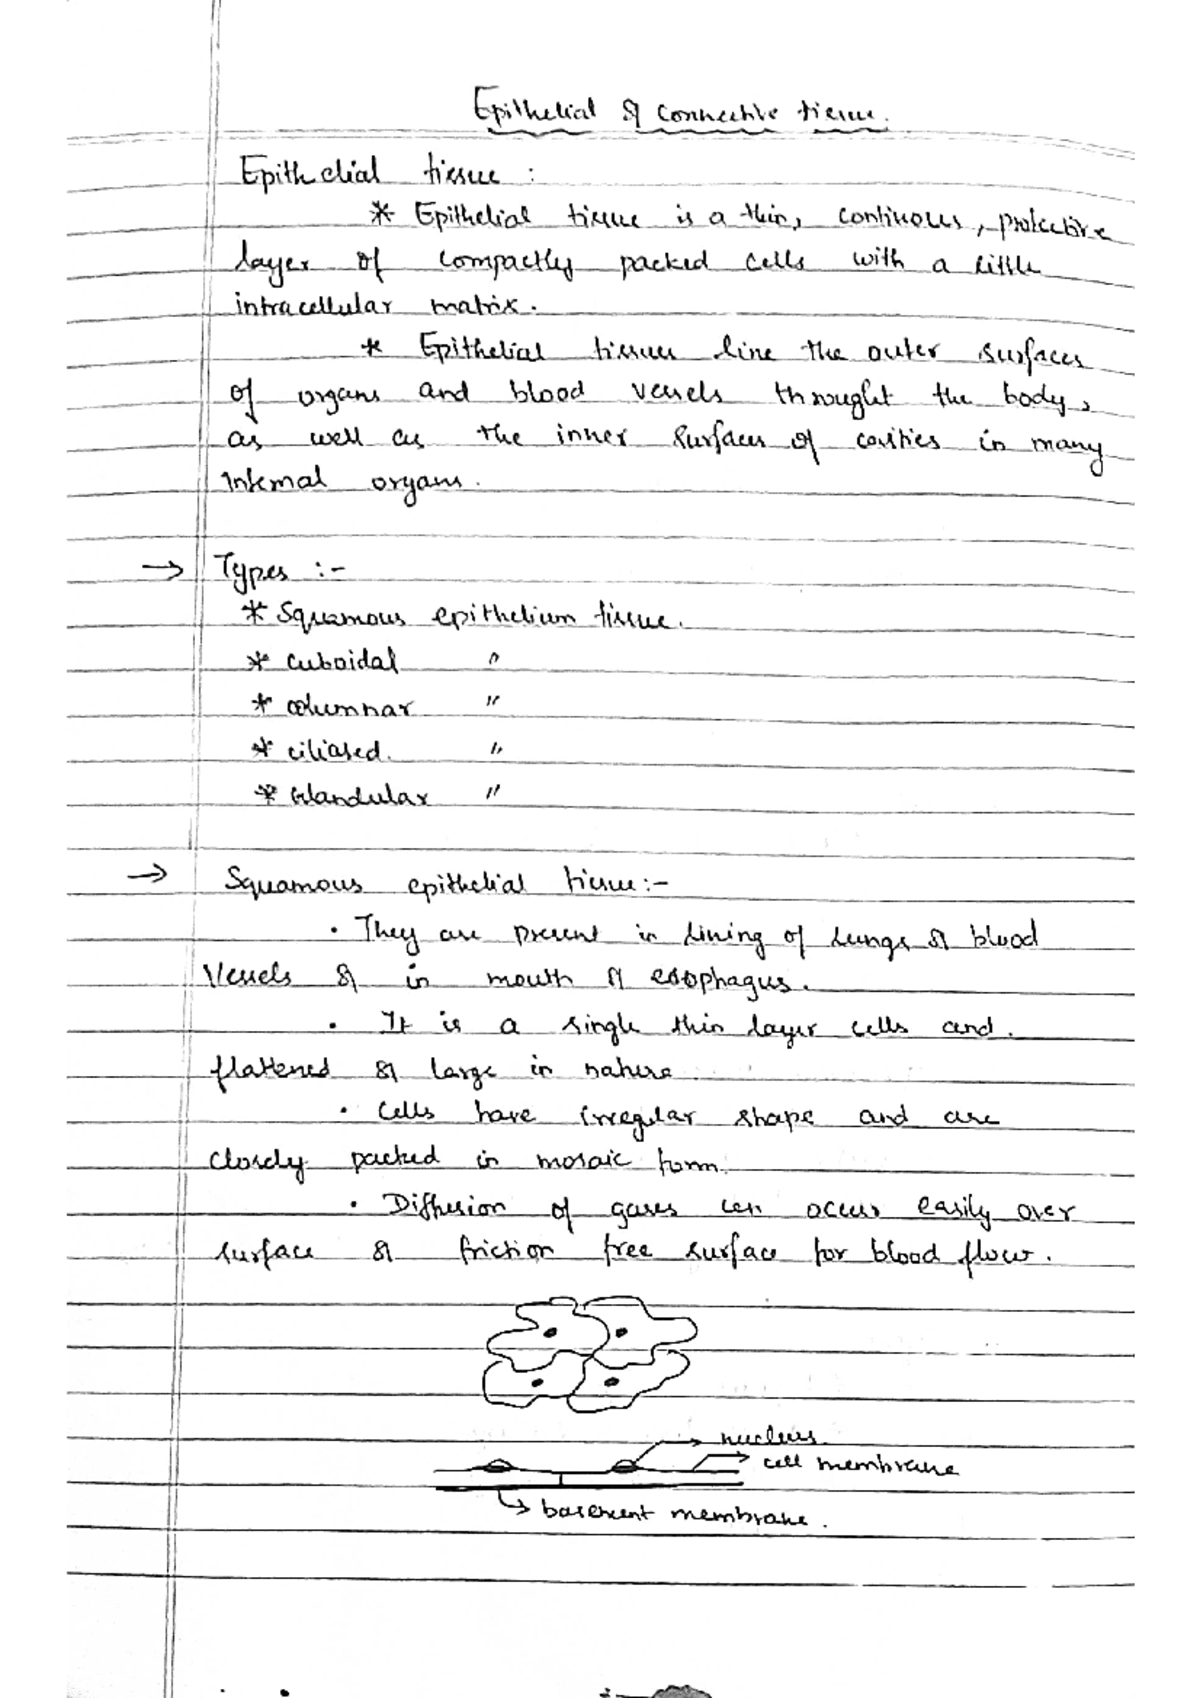 Epithelial & connective tissue.
Epithelial tissue :
* Epithelial tissue is a thin, continous, protective
layer of compactly packed cells with a little
intracellular matrix.
* Epithelial tissues line the outer surfaces
of organs and blood vessels throught the body,
as well as the inner surfaces of cavities in many
internal organs.
→ Types :-
* Squamous epithelium tissue.
* cuboidal "
* columnar "
* ciliased. "
* Glandular "
→ Squamous epithelial tissue:-
• They are present in Lining of Lungs & blood
Vessels & in mouth & esophagus.
• It is a single thin layer cells and.
flattened & large in nature
• Cells have irregular shape and are
closely packed in mosaic form.
• Diffusion of gases can occur easily over
surface & friction free surface for blood flow.
nucleus.
cell membrane
basement membrane.